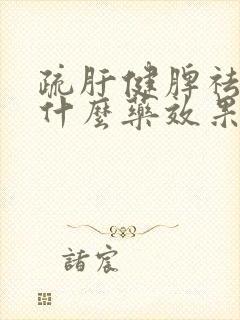 疏肝健脾祛
什麼藥效果
諸宸